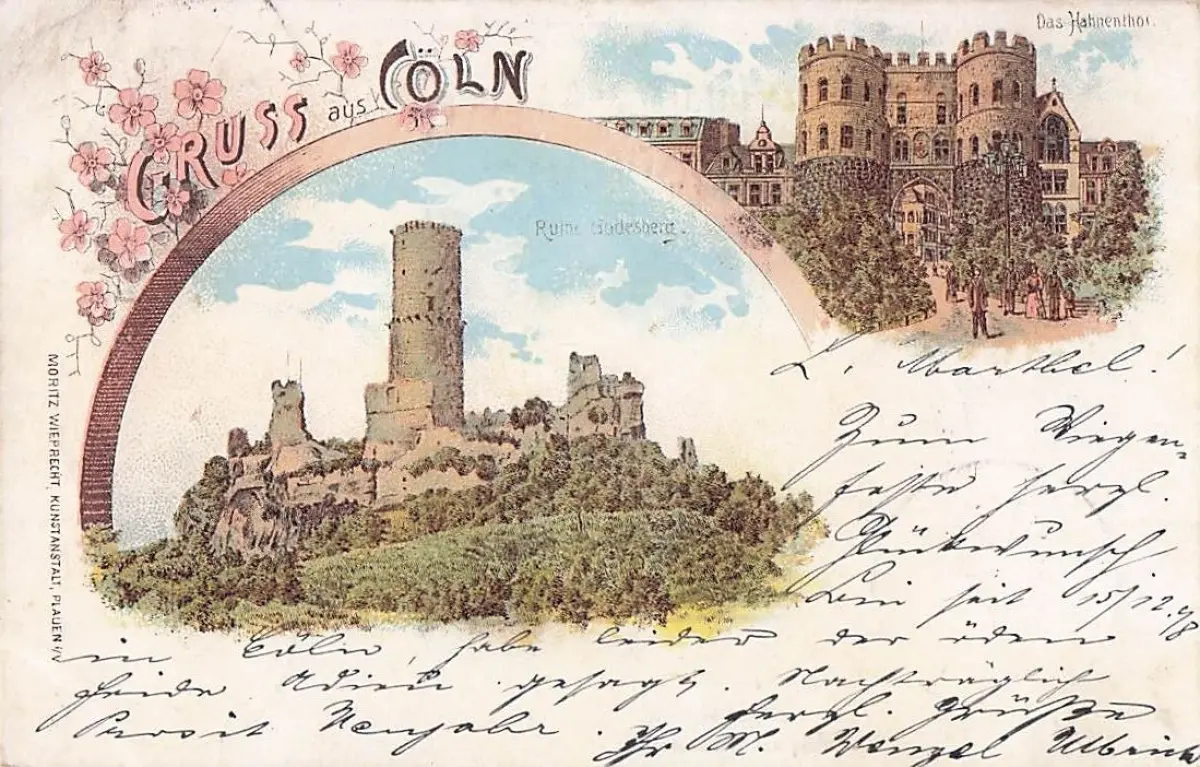 GRUSS aus CÖLN
Das Hahnenthor.
Ruine Godesberg.
MORITZ WIEPRECHT KUNSTANSTALT, PLAUEN i/V
L. !
Zum Wiegen-
feste herzl.
Glückwunsch
Bin seit 15/12. 98
in Cöln, habe leider der öden
Heide Adieu gesagt. Nachträglich
Prosit Neujahr. Herzl. Grüße
Ihr M. Wenzel Ulbrich